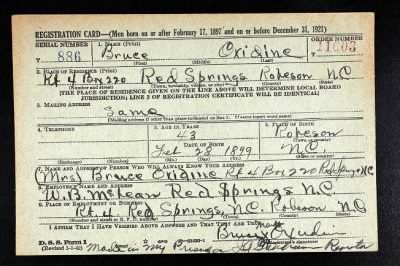 REGISTRATION CARD—(Men born on or after February 17, 1897 and on or before December 31, 1921)
SERIAL NUMBER
1. NAME (Print)
ORDER NUMBER
T 886
Bruce Oxidine
11003
(First) (Middle) (Last)
2. PLACE OF RESIDENCE (Print)
Rt 4 Box 220 Red Springs Robeson N.C.
(Number and street) (Town, township, village, or city) (County) (State)
[THE PLACE OF RESIDENCE GIVEN ON THE LINE ABOVE WILL DETERMINE LOCAL BOARD
JURISDICTION; LINE 2 OF REGISTRATION CERTIFICATE WILL BE IDENTICAL]
3. MAILING ADDRESS
Same
[Mailing address if other than place indicated on line 2. If same insert word same]
4. TELEPHONE
5. AGE IN YEARS
6. PLACE OF BIRTH
43
Robeson
DATE OF BIRTH
(Town or county)
Feb 28 1899
N.C.
(Exchange) (Number) (Mo.) (Day) (Yr.) (State or country)
7. NAME AND ADDRESS OF PERSON WHO WILL ALWAYS KNOW YOUR ADDRESS
Mrs. Bruce Oxidine Rt 4 Box 220 Red Springs N.C.
8. EMPLOYER'S NAME AND ADDRESS
W.B. McLean Red Springs N.C.
9. PLACE OF EMPLOYMENT OR BUSINESS
Rt. 4 Red Springs, N.C. Robeson N.C.
(Number and street or R. F. D. number) (Town) (County) (State)
I AFFIRM THAT I HAVE VERIFIED ABOVE ANSWERS AND THAT THEY ARE TRUE.
D. S. S. Form 1
(Revised 1-1-42)
GPO
Bruce
Made in my